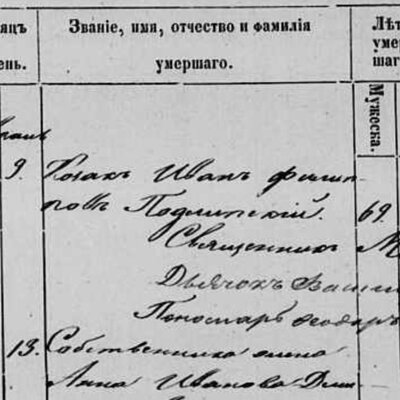 яцъ
ень.
Званіе, имя, отчество и фамилія
умершаго.
Лѣт
умер
шаго
Мужеска.
9.
Козакъ Иванъ Филип-
повъ Подлипскій.
69.
Священникъ М
Дьячокъ Васил
Пономарь Ѳеодоръ
13.
Собственника жена
Анна Иванова